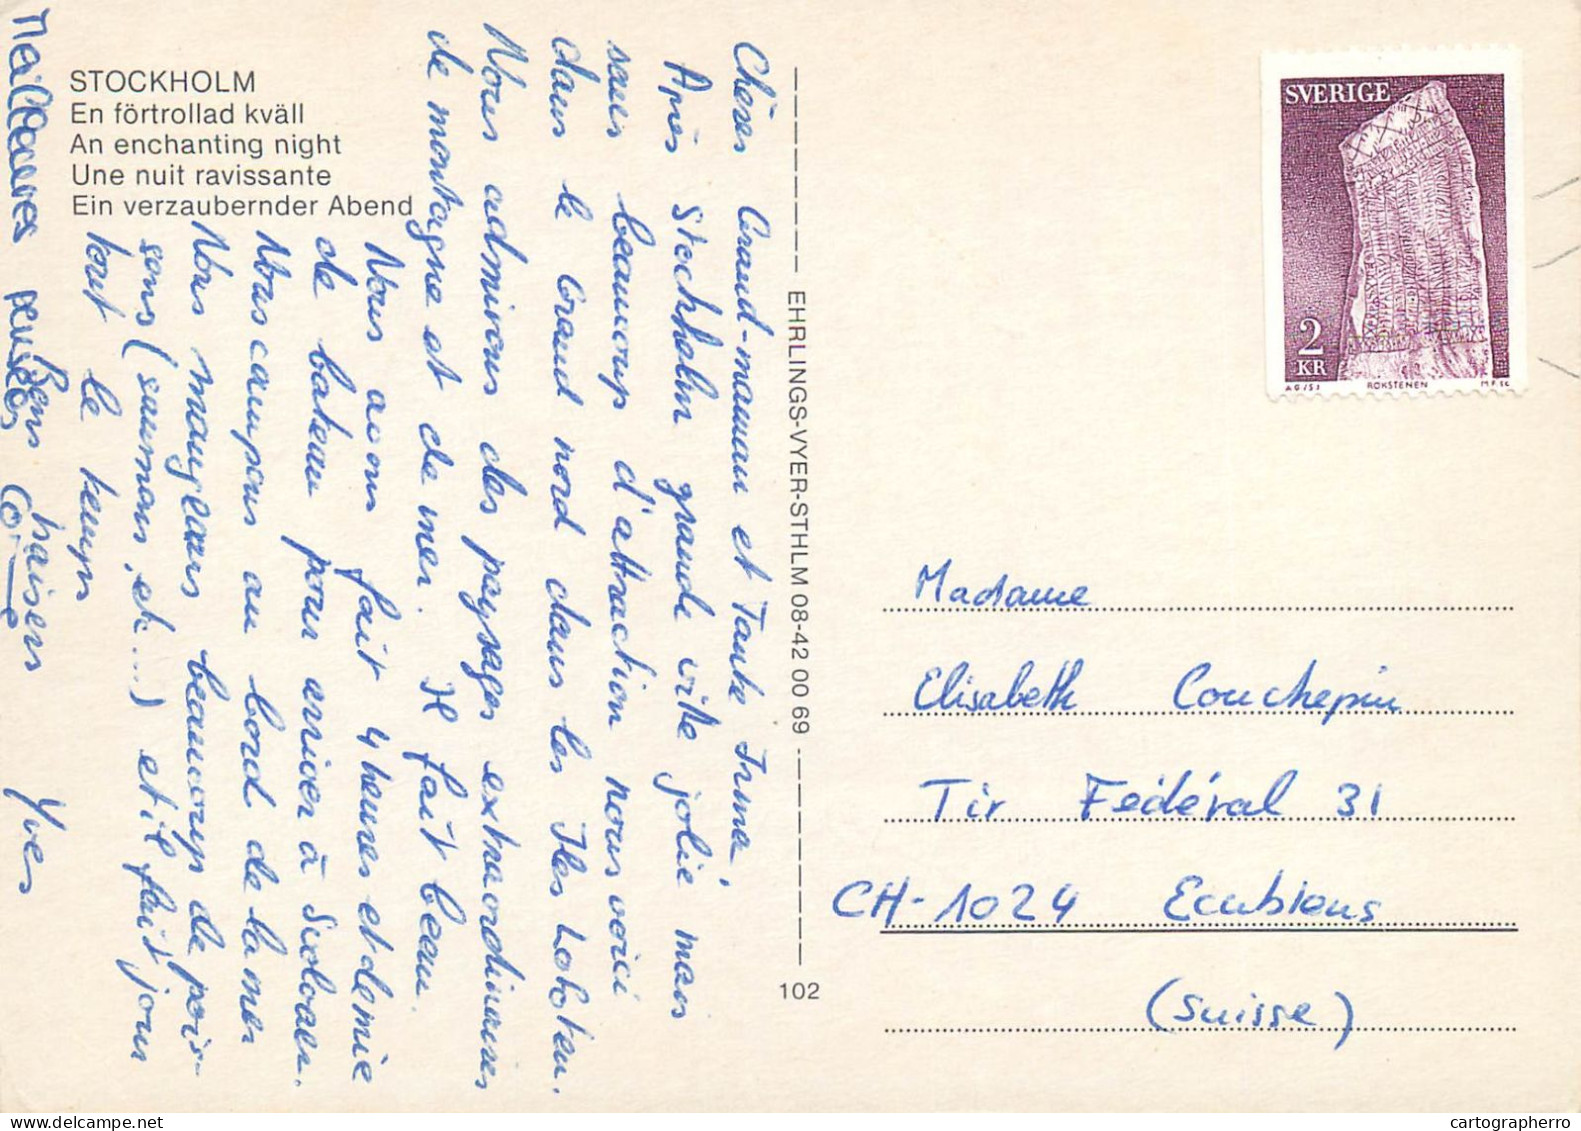 STOCKHOLM
En förtrollad kväll
An enchanting night
Une nuit ravissante
Ein verzaubernder Abend
Chères Grand-maman et Tante Irma,
Après Stockholm grande ville jolie mais
sans beaucoup d'attraction nous voici
dans le Grand nord dans les Iles Lofoten.
Nous admirons des paysages extraordinaires
de montagne et de mer. Il fait beau.
Nous avons fait 4 heures et demie
de bateau pour arriver à Svolvaer.
Nous campons au bord de la mer
Nous mangeons beaucoup de pois-
sons (saumon, etc...) et il fait jour
tout le temps
Bons baisers Yves
Meilleures pensées
EHRLINGS-VYER-STHLM 08-42 00 69
102
SVERIGE
2
KR
RÖKSTENEN
Madame
Elisabeth Couchepin
Tir Fédéral 31
CH-1024 Ecublens
(Suisse)
cartographerro